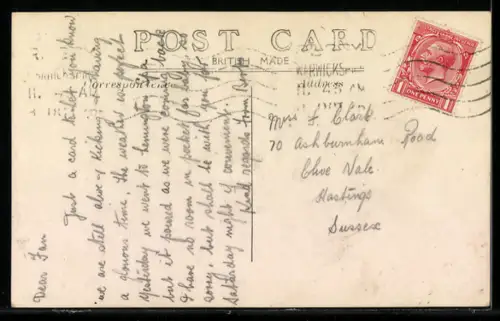 POST CARD
BRITISH MADE
Correspondence
Address
WARWICKS
ONE PENNY
Dear Fan
Just a card to let you know
we are still alive & kicking & having
a glorious time. The weather was perfect
yesterday we went to Leamington
but it poured as we were coming back
I have no room in pocket for baby, so
sorry, but shall be with you for
Saturday night if convenient.
Kind regards from
F Clark
70 Ashburnham Road
Clive Vale
Hastings
Sussex